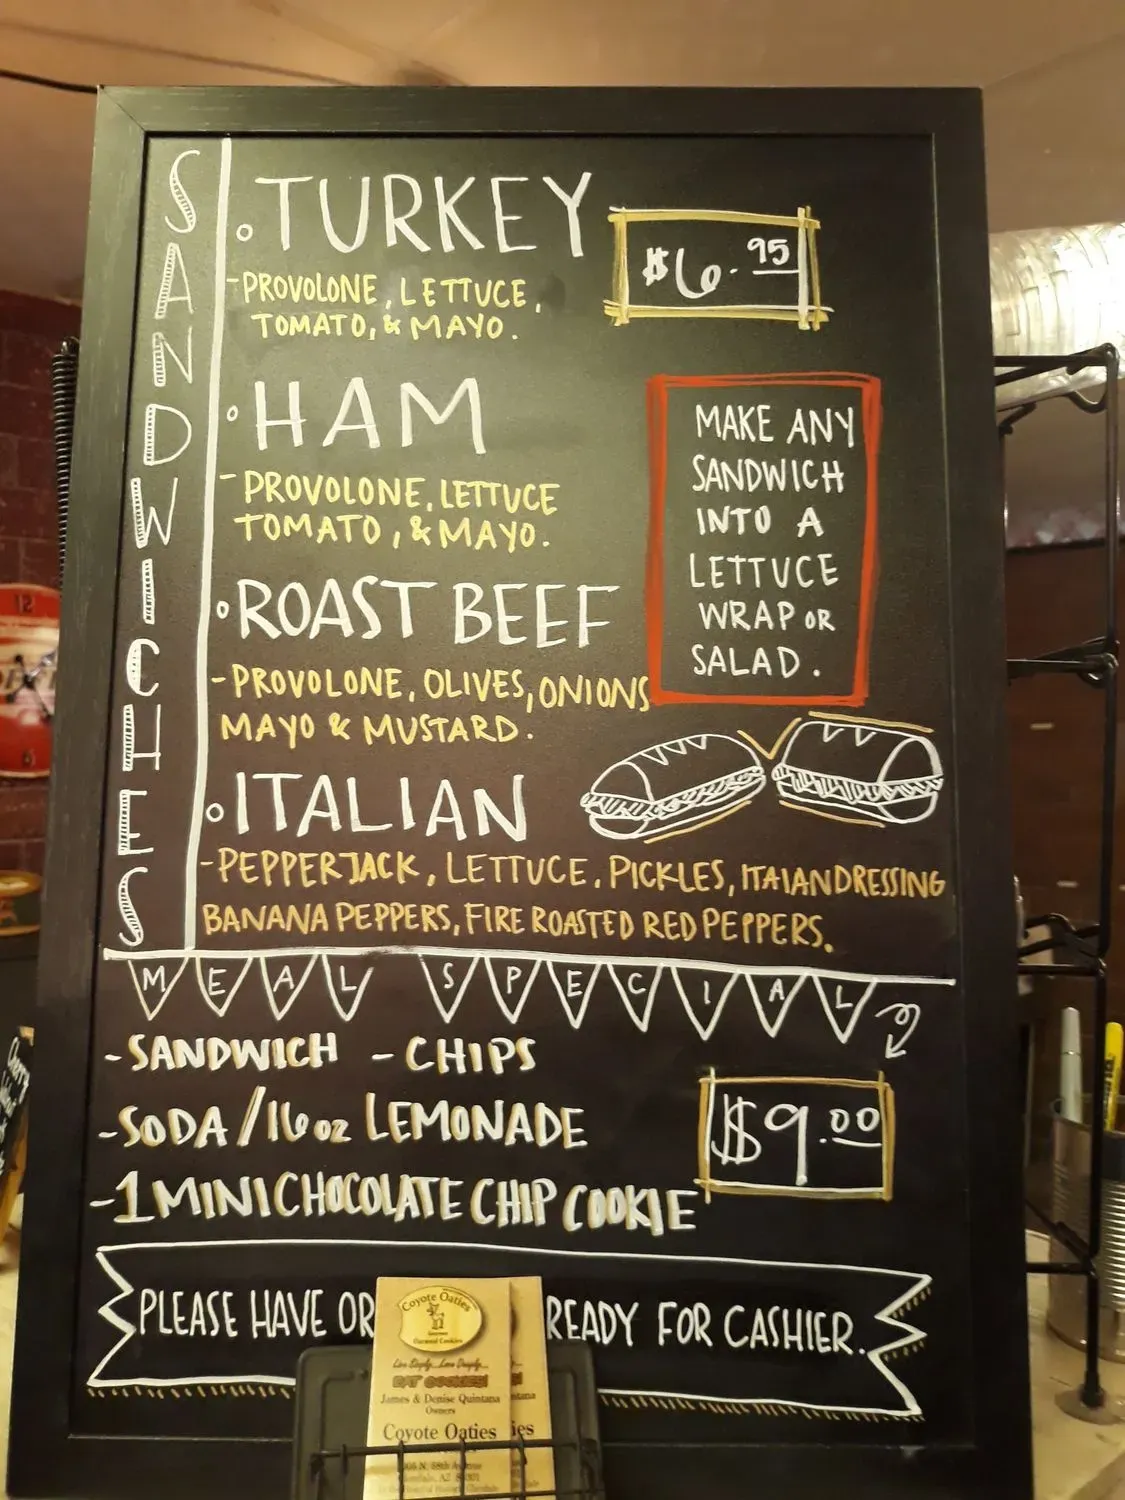 SANDWICHES
TURKEY
$6.95
-PROVOLONE, LETTUCE,
TOMATO, & MAYO.
HAM
-PROVOLONE, LETTUCE
TOMATO, & MAYO.
ROAST BEEF
-PROVOLONE, OLIVES, ONIONS
MAYO & MUSTARD.
ITALIAN
-PEPPERJACK, LETTUCE, PICKLES, ITAIAN DRESSING
BANANA PEPPERS, FIRE ROASTED RED PEPPERS.
MAKE ANY
SANDWICH
INTO A
LETTUCE
WRAP OR
SALAD.
MEAL SPECIAL
-SANDWICH -CHIPS
-SODA/16oz LEMONADE
-1 MINI CHOCOLATE CHIP COOKIE
$9.00
PLEASE HAVE OR READY FOR CASHIER.
Coyote Oaties
Gourmet
Oatmeal Cookies
Live Simply...Love Deeply...
EAT COOKIES!
James & Denise Quintana
Owners
Coyote Oaties
12
6